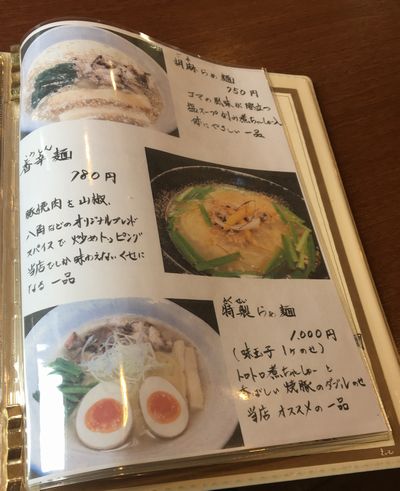 ごま
胡麻らぁ麺
750円
ゴマの風味が際立つ
塩スープ
体にやさしい一品
香辛麺
780円
豚焼肉を山椒、
八角などのオリジナルブレンド
スパイスで炒めトッピング
当店でしか味わえないくせに
なる一品
特製らぁ麺
1,000円
(味玉子1ケのせ)
トロトロ煮ちゃしゅーと
香ばしい焼豚のダブルのせ
当店オススメの一品